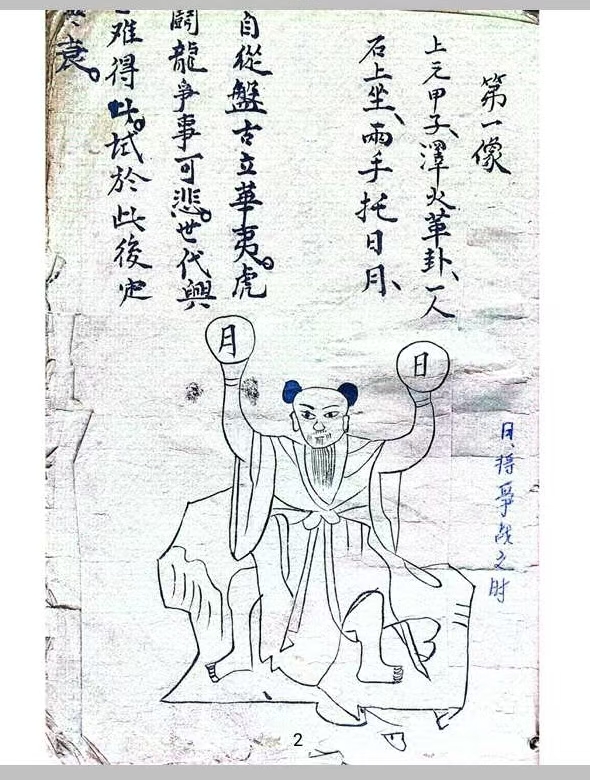 第一像
上元甲子、澤火革卦、一人
石上坐、兩手托日月、
自從盤古立華夷。虎
鬪龍爭事可悲。世代興
难得。試於此後定
衰。
月
日
月、將爭战之时
2